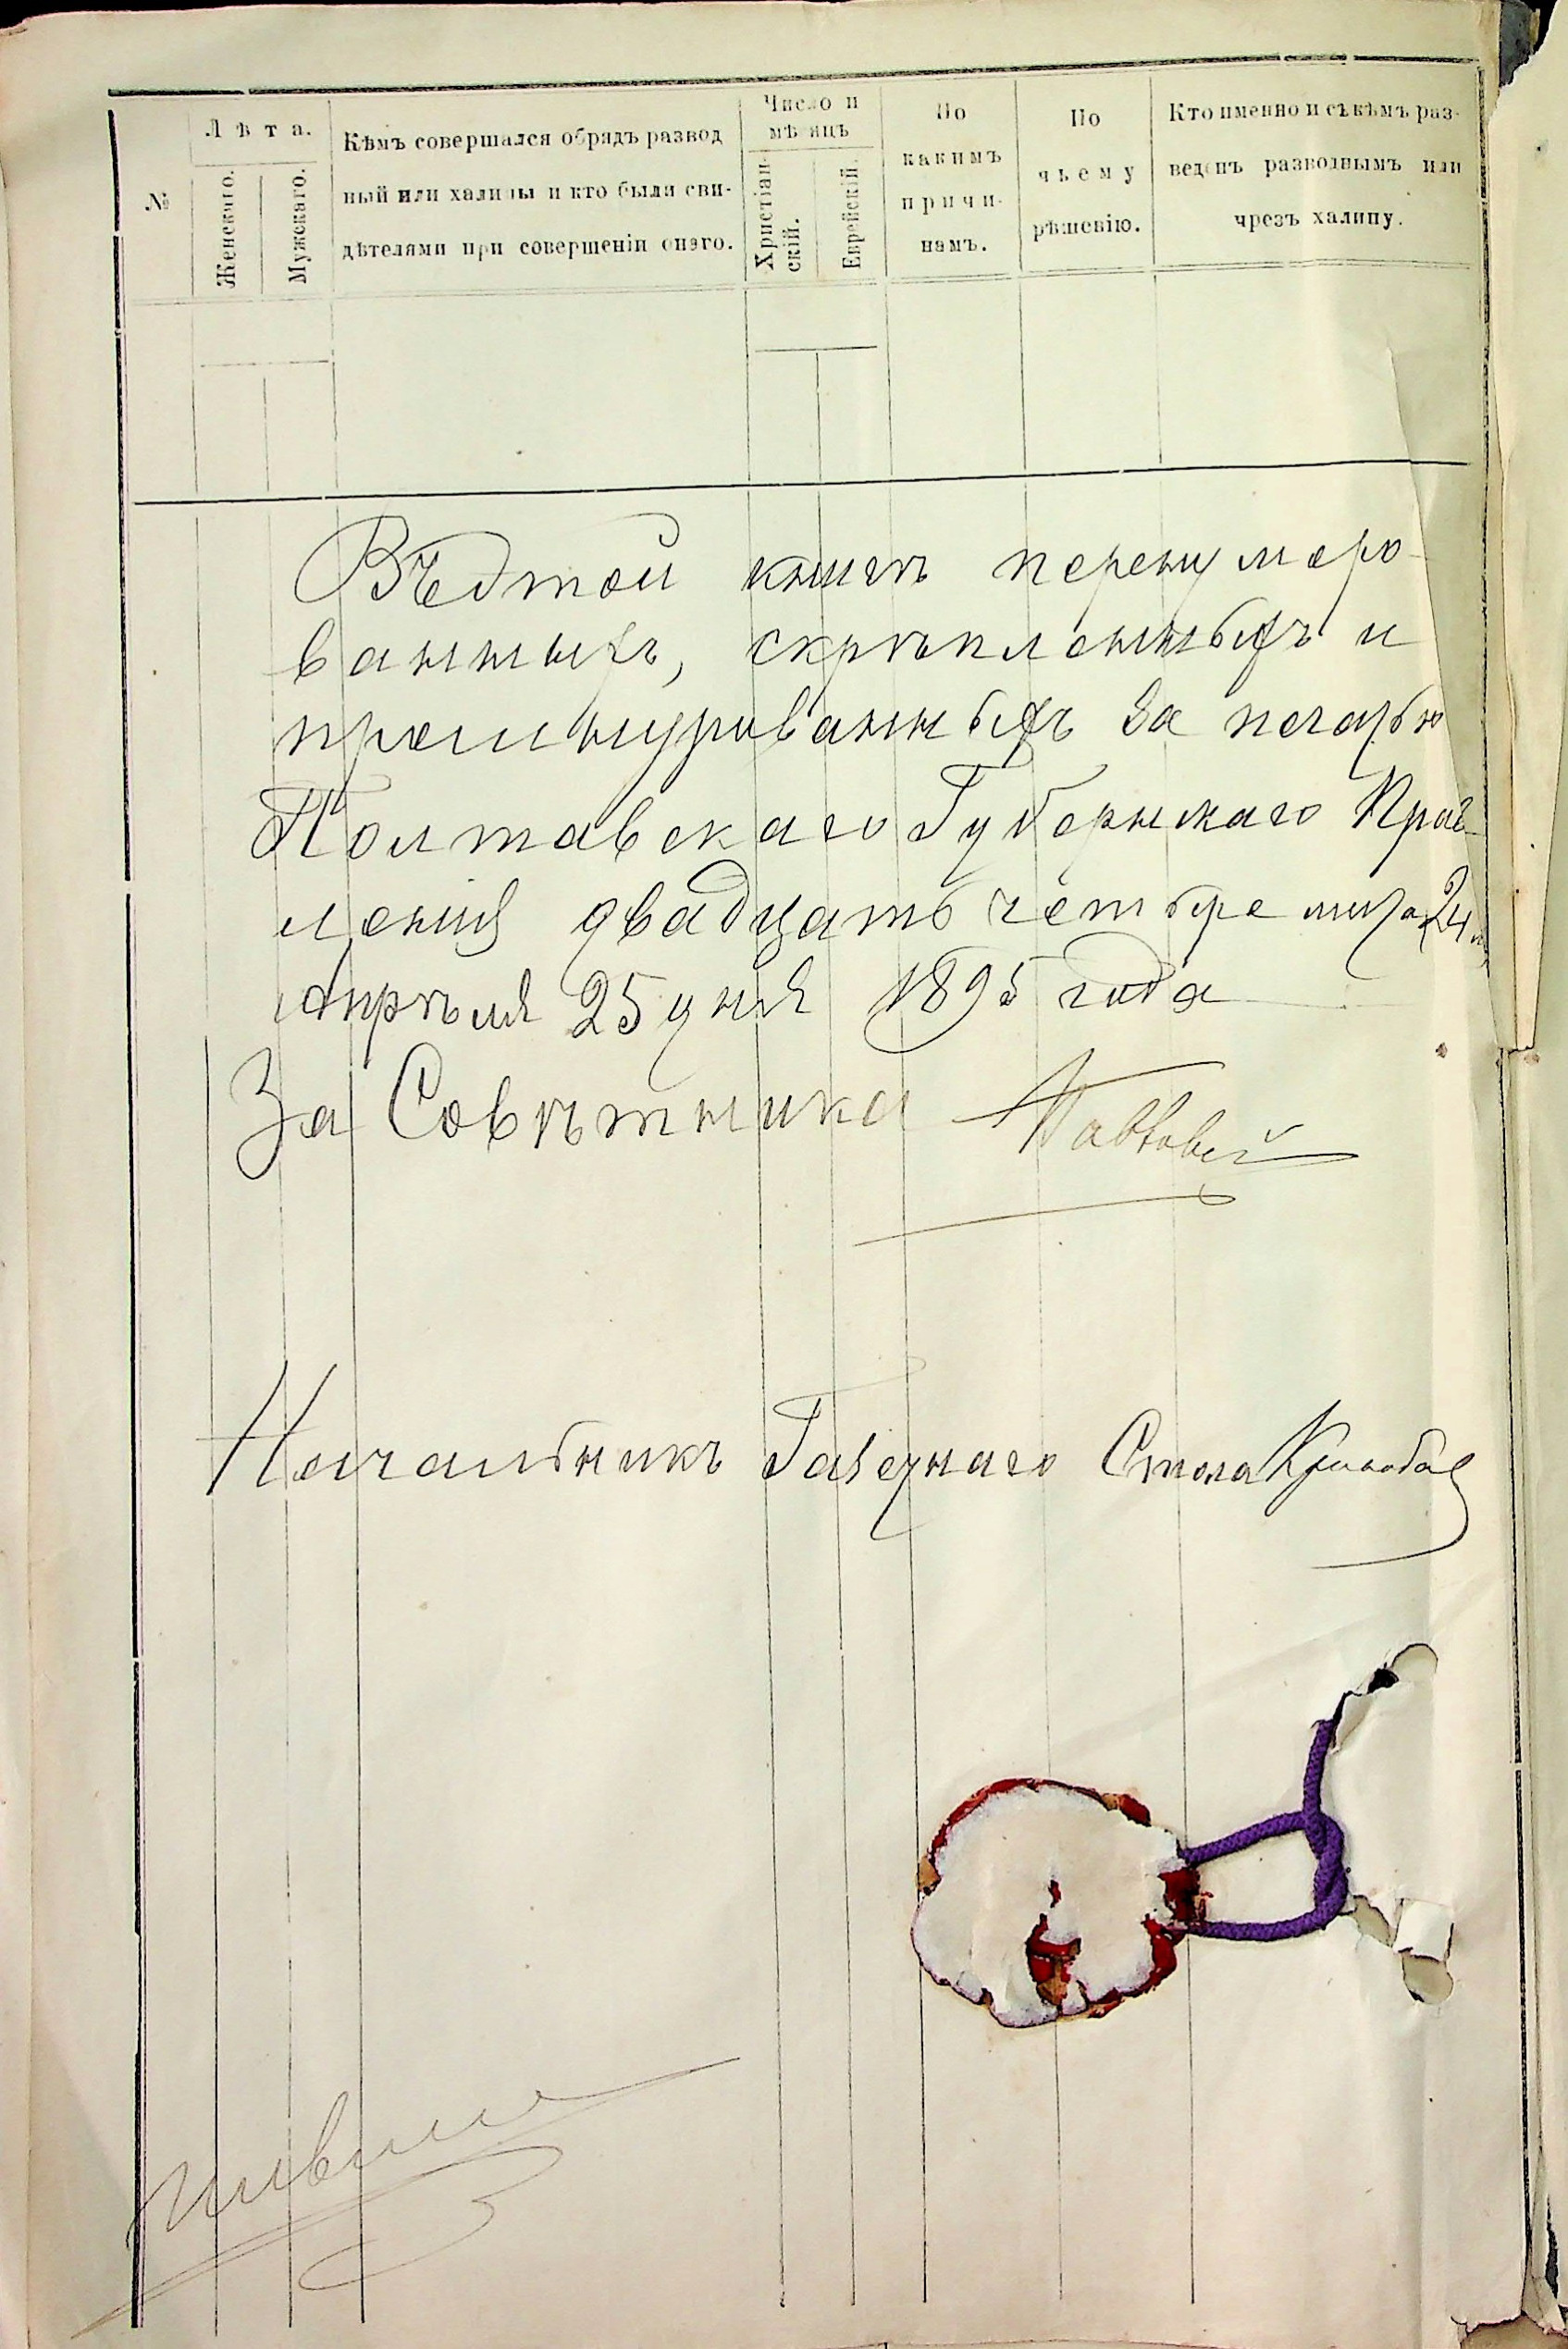 №
Лѣта.
Женскаго.
Мужскаго.
Кѣмъ совершался обрядъ развод
ный или халицы и кто были сви-
дѣтелями при совершеніи онаго.
Число и
мѣсяцъ
Христіан-
скій.
Еврейскій.
По
какимъ
причи-
намъ.
По
чьему
рѣшенію.
Кто именно и съ кѣмъ раз-
веденъ разводнымъ или
чрезъ халицу.
Въ этой книгѣ перенумеро-
ванныхъ, скрѣпленныхъ и
прошнурованныхъ за печатью
Полтавскаго Губернскаго Прав-
ленія двадцать четыре листа 24
Апрѣля 25 дня 1895 года
За Совѣтника
Начальникъ Газетнаго Стола